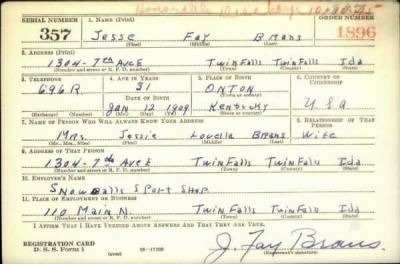 Honorable Discharge 10-30-45
SERIAL NUMBER 1. NAME (Print) ORDER NUMBER
357 Jesse Fay Brans 1896
(First) (Middle) (Last)
2. ADDRESS (Print)
1304-7th Ave E Twin Falls Twin Falls Ida
(Number and street or R. F. D. number) (Town) (County) (State)
3. TELEPHONE 4. AGE IN YEARS 5. PLACE OF BIRTH 6. COUNTRY OF CITIZENSHIP
696R 31 Onton
DATE OF BIRTH
Jan 12 1909 Kentucky USA
(Mo.) (Day) (Yr.) (State or country)
7. NAME OF PERSON WHO WILL ALWAYS KNOW YOUR ADDRESS 8. RELATIONSHIP OF THAT PERSON
Mrs. Jessie Louella Brans Wife
(Mr., Mrs., Miss) (First) (Middle) (Last)
9. ADDRESS OF THAT PERSON
1304-7th Ave E Twin Falls Twin Falls Ida
(Number and street or R. F. D. number) (Town) (County) (State)
10. EMPLOYER'S NAME
Snowballs Sport Shop
11. PLACE OF EMPLOYMENT OR BUSINESS
110 Main N. Twin Falls Twin Falls Ida
(Number and street or R. F. D. number) (Town) (County) (State)
I AFFIRM THAT I HAVE VERIFIED ABOVE ANSWERS AND THAT THEY ARE TRUE.
REGISTRATION CARD
D. S. S. Form 1 (over) 16-17105 J. Fay Brans.
(Registrant's signature)